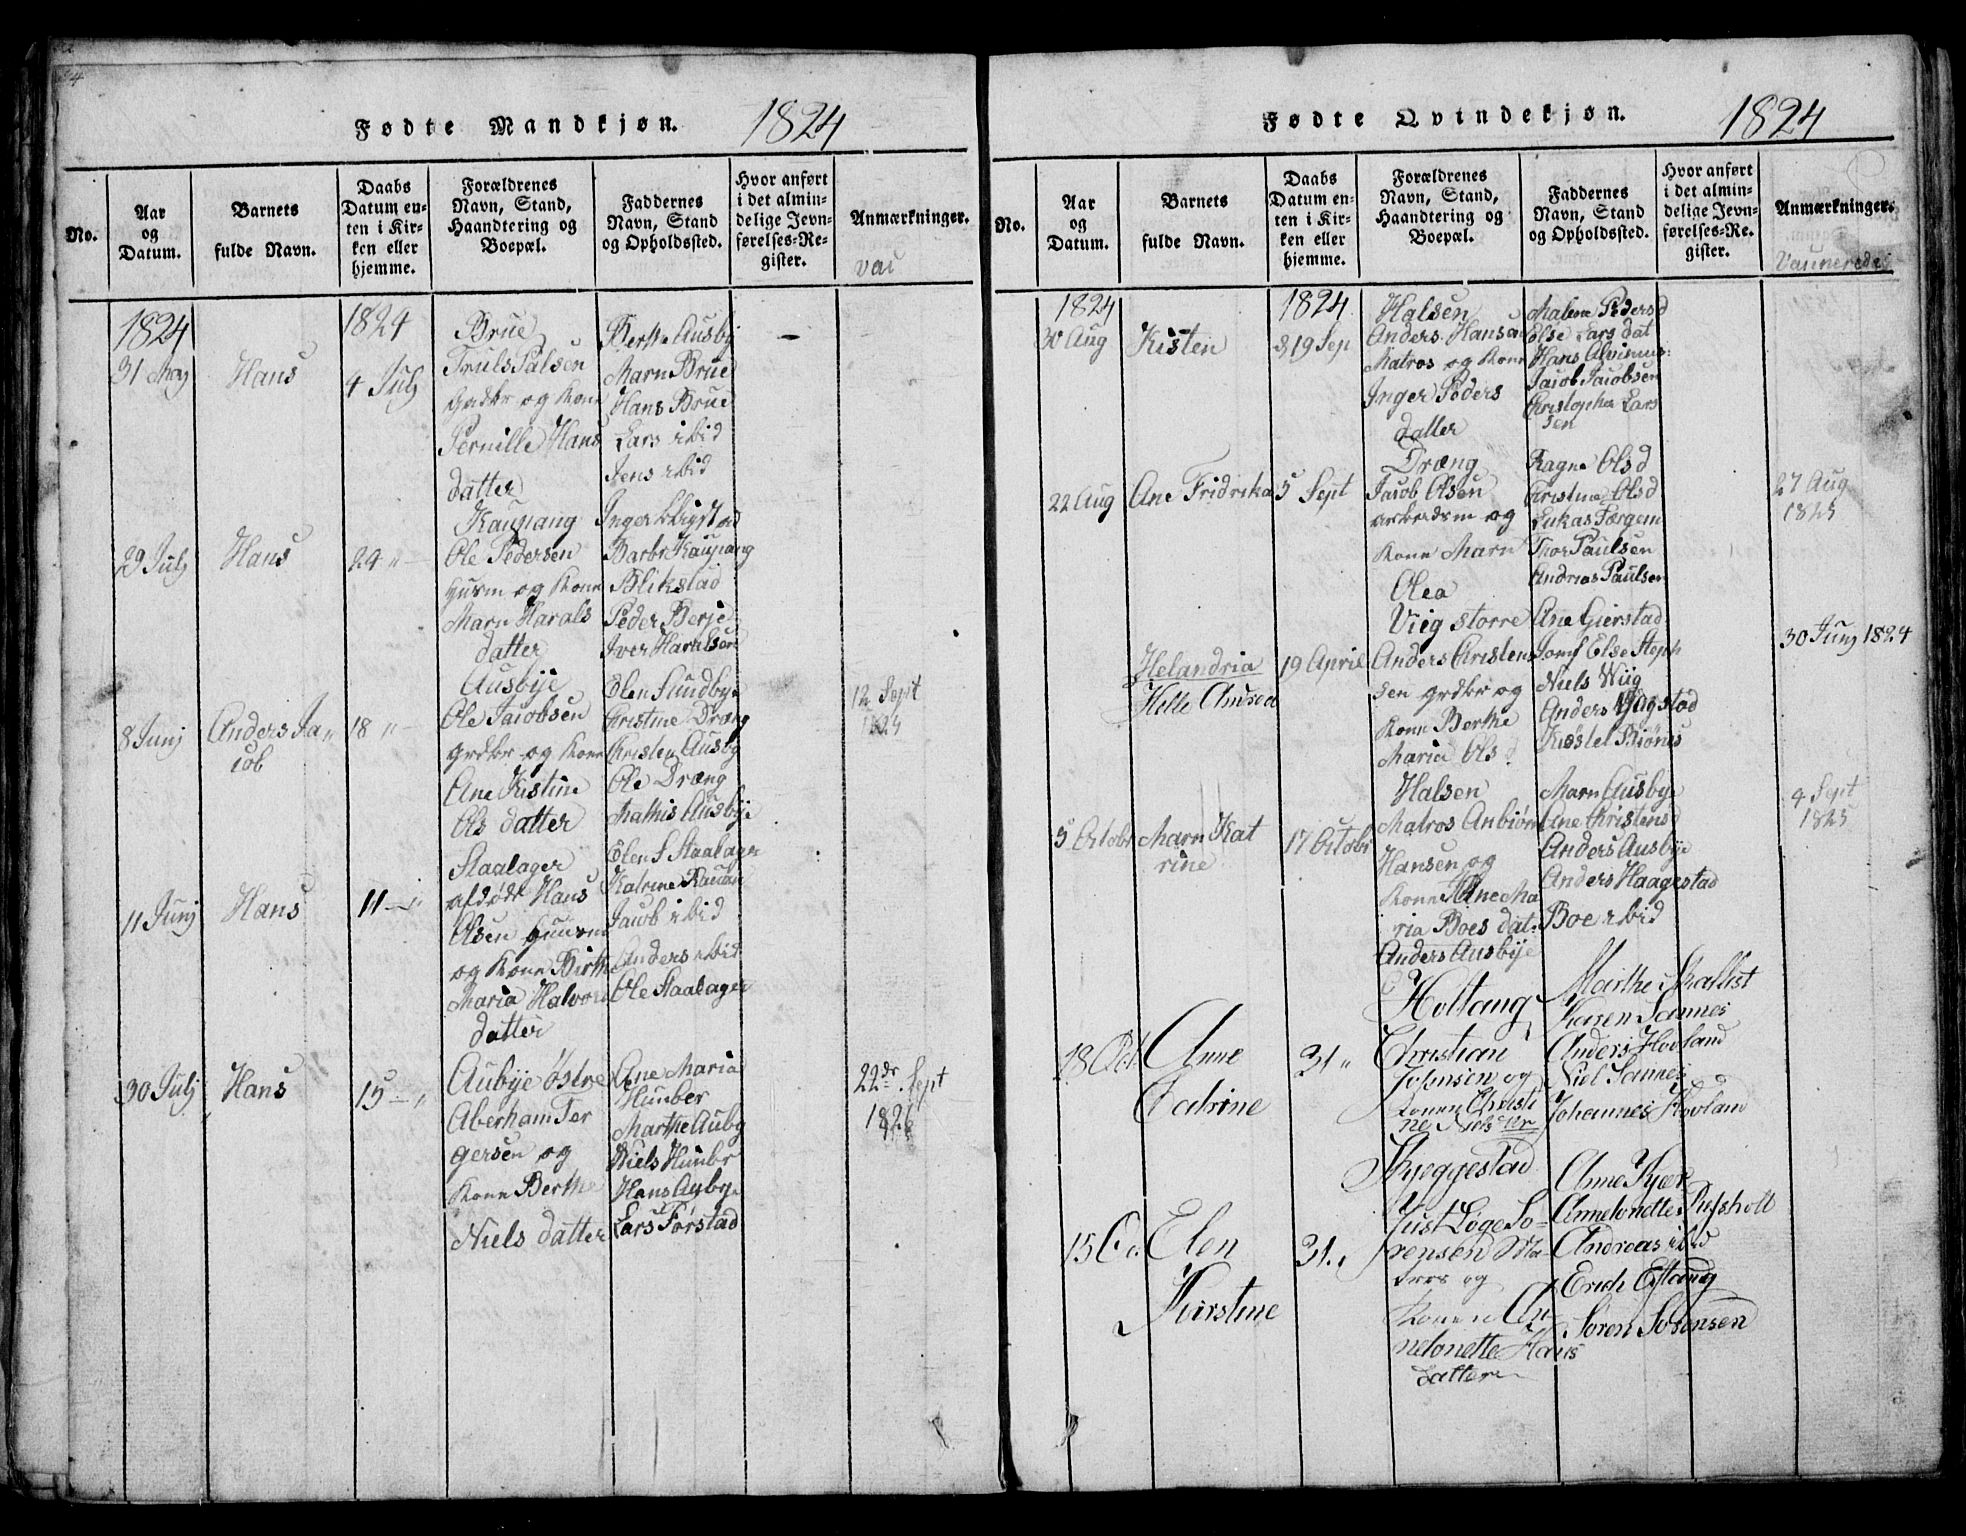 Fødte Mandkjøn. 1824
No.
Aar og Datum.
Barnets fulde Navn.
Daabs Datum enten i Kirken eller hjemme.
Forældrenes Navn, Stand, Haandtering og Boepæl.
Faddernes Navn, Stand og Opholdssted.
Hvor anført i det almindelige Jevnførelses-Register.
Anmærkninger.
vai
1824
31 May
Hans
1824
4 Julj
Brue
Truls Palsen
grdbr og Kone
Pernille Hans
datter
Berthe Ausby
Marn Brue
Hans Brue
Lars ibid
Jens ibid
29 Julj
Hans
29 "
Kaupang
Ole Pedersen
husm og Kone
Marn Harals
datter
Inger Kligstad
Barbr Kaupang
Blikstad
Peder Berje
Iver Haralsen
8 Junj
Anders Ja
cob
18 "
Ausbye
Ole Jacobsen
grdbr og Kone
Ane Kistine
Ols datter
Elen Sundbye
Christine Dræng
Christen Ausby
Ole Dræng
Mathis Ausbye
12 Sept
11 Junj
Hans
11 "
Staalager
afdøde Hans
Olsen huusm
og Kone Birthe
Maria Halvors
datter
Elen S Staalager
Katrine
Jacob ibid
Anders ibid
Ole Staalager
30 Julj
Hans
15 "
Aubye østre
Aberham Ter
gersen og
Kone Berthe
Niels datter
Ane Maria
Humber
Marthe Auby
Niels Humbr
Hans Aubye
Lars Førstad
22dr Sept
1826
Fødte Qvindekjøn. 1824
No.
Aar og Datum.
Barnets fulde Navn.
Daabs Datum enten i Kirken eller hjemme.
Forældrenes Navn, Stand, Haandtering og Boepæl.
Faddernes Navn, Stand og Opholdssted.
Hvor anført i det almindelige Jevnførelses-Register.
Anmærkninger.
1824
30 Aug
Kisten
1824
19 Sep
Halsen
Anders Hansen
Matros og Kone
Inger Peders
datter
Malene Pedersd
Else Lars dat
Hans
Jacob Jacobsen
Christopher Lars
sen
22 Aug
Ane Fridrika
5 Sept
Dræng
Jacob Olsen
arbeidsm og
Kone Marn
Olea
Ragne Olsd
Christine Olsd
Lukas Færgem
Thor Paulsen
Andrias Paulsen
27 Aug
1825
Helandria
Helle
19 April
Viig storre
Anders Christen
sen grdbr og
Kone Berthe
Maria Olsd
Ane Gierstad
Jomf Else Steph
Niels Wiig
Anders
Kiøstel Biønes
30 Junj 1824
5 Octobr
Marn Kat
rine
17 Octobr
Halsen
Matros Anbiørn
Hansen og
Kone Ane Ma
ria Boes dat.
Anders Ausbye
Marn Ausbye
Ane Christensd
Anders Ausbye
Anders Haagestad
Boe ibid
4 Sept
1825
18 Oct
Anne
Catrine
31 "
Holtang
Christian
og
Konen Christi
ne Niels dtr
Marthe
Karen Sannes
Anders Hovland
Niel Sannes
Johannes Hovland
15
Elen
Kirstine
31 "
Skeggestad
Just Løge So-
rensen Ma-
tros og
Konen An
netonette Hans
datter
Anne
Annetonette
Andreas ibid
Erich Eftang
Soren Sorensen